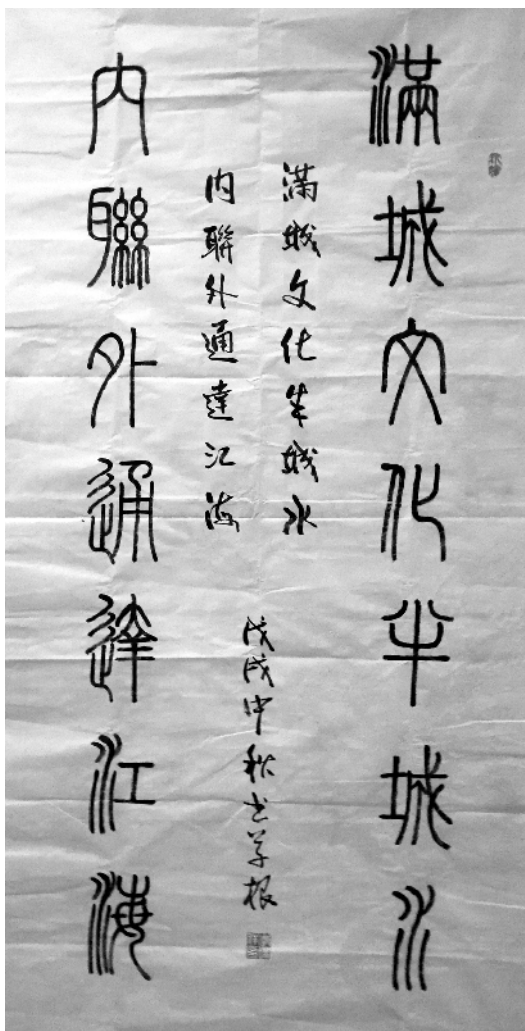 滿城文化半城水
滿城文化半城水
内聯外通達江海
戊戌中秋書學根
内聯外通達江海